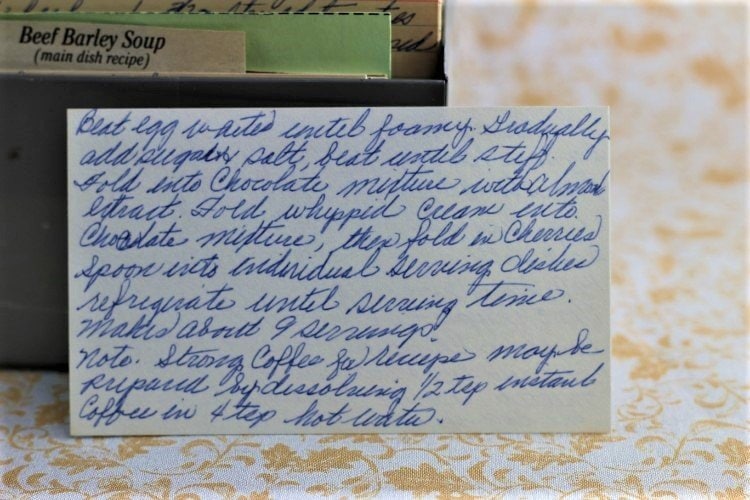 Beef Barley Soup
(main dish recipe)
Beat egg whites until foamy. Gradually
add sugar & salt, beat until stiff.
Fold into Chocolate mixture with Almond
extract. Fold whippid cream into
Chocolate mixture, then fold in Cherries
Spoon into individual serving dishes
refrigirate until serving time.
Makes about 9 servings.
Note. Strong Coffee for recipe may be
prepared by dissolving 1/2 tsp instant
Coffee in 4 tsp hot water.